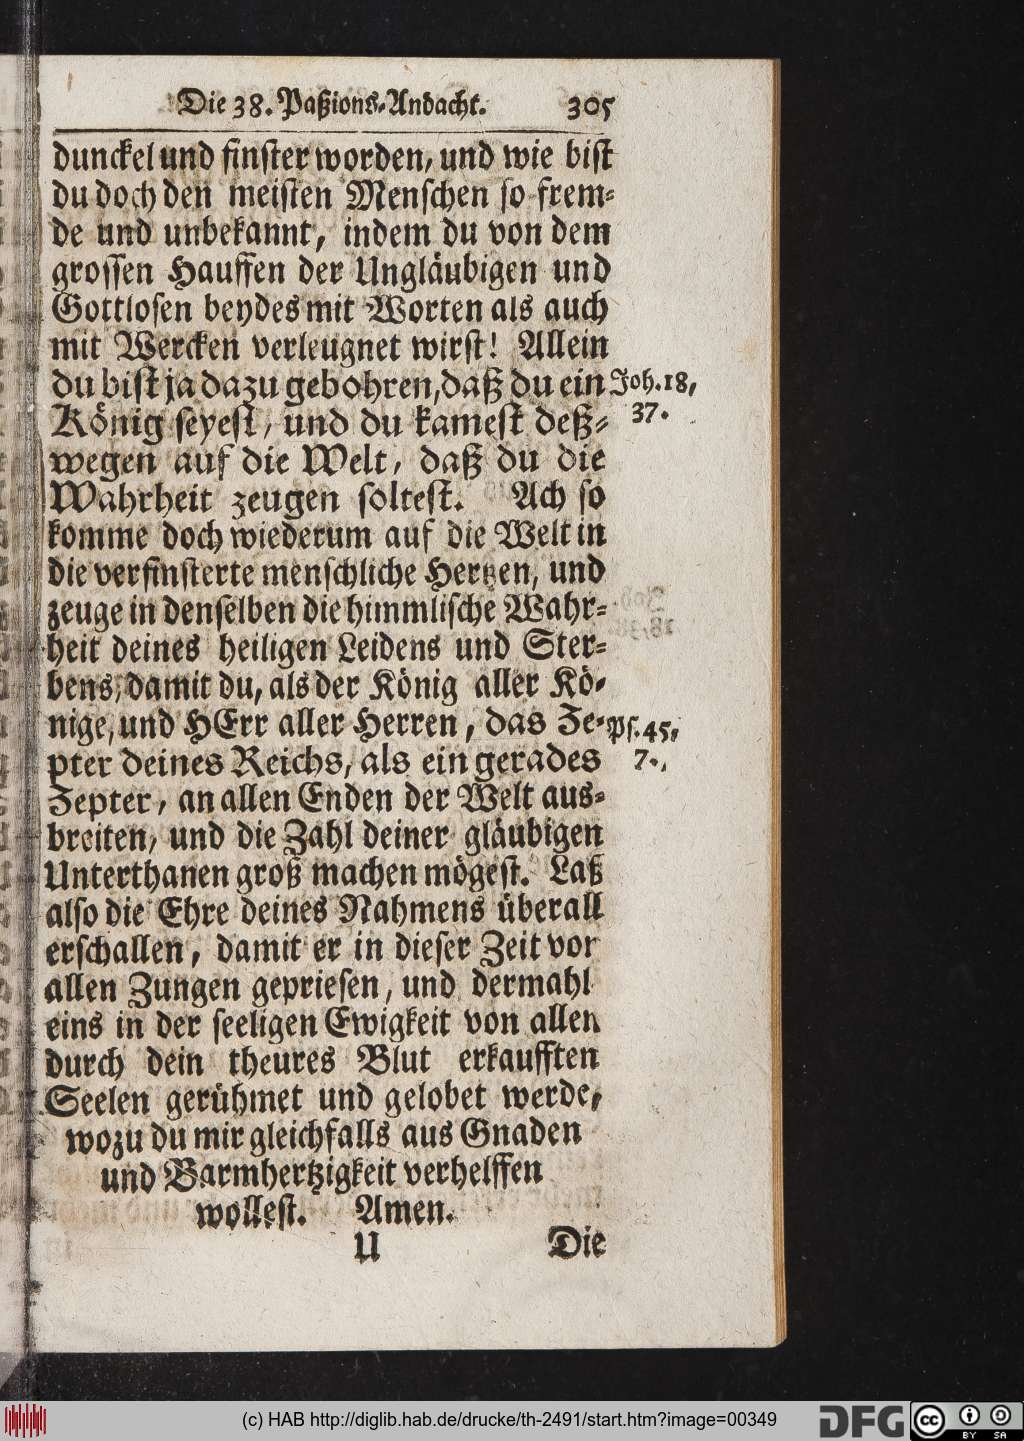 Die 38. Paßions-Andacht. 305
dunckel und finster worden, und wie bist
du doch den meisten Menschen so frem-
de und unbekannt, indem du von dem
grossen Hauffen der Ungläubigen und
Gottlosen beydes mit Worten als auch
mit Wercken verleugnet wirst! Allein
du bist ja dazu gebohren, daß du ein Joh. 18,
König seyest, und du kamest deß- 37.
wegen auf die Welt, daß du die
Wahrheit zeugen soltest. Ach so
komme doch wiederum auf die Welt in
die verfinsterte menschliche Hertzen, und
zeuge in denselben die himmlische Wahr-
heit deines heiligen Leidens und Ster-
bens, damit du, als der König aller Kö-
nige, und HErr aller Herren, das Ze- Ps. 45,
pter deines Reichs, als ein gerades 7.
Zepter, an allen Enden der Welt aus-
breiten, und die Zahl deiner gläubigen
Unterthanen groß machen mögest. Laß
also die Ehre deines Nahmens überall
erschallen, damit er in dieser Zeit vor
allen Zungen gepriesen, und dermahl
eins in der seeligen Ewigkeit von allen
durch dein theures Blut erkaufften
Seelen gerühmet und gelobet werde,
wozu du mir gleichfalls aus Gnaden
und Barmhertzigkeit verhelffen
wollest. Amen.
U Die
(c) HAB http://diglib.hab.de/drucke/th-2491/start.htm?image=00349
DFG cc BY SA